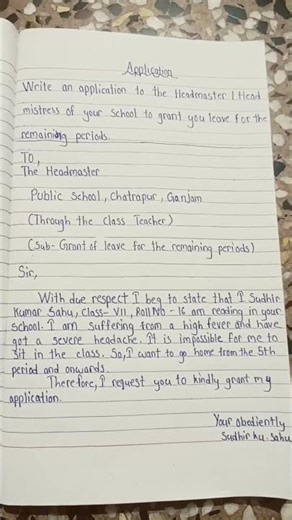 Application
Write an application to the Headmaster / Head
mistress of your school to grant you leave for the
remaining periods.
TO,
The Headmaster
Public School, Chatrapur, Ganjam
(Through the Class Teacher)
(Sub- Grant of leave for the remaining periods)
Sir,
With due respect I beg to state that I Sudhir
Kumar Sahu, Class- VII, Roll No - 16 am reading in your
school. I am suffering from a high fever and have
got a severe headache. It is impossible for me to
sit in the class. So, I want to go home from the 5th
period and onwards.
Therefore, I request you to kindly grant my
application.
Your obediently
Sudhir ku. Sahu